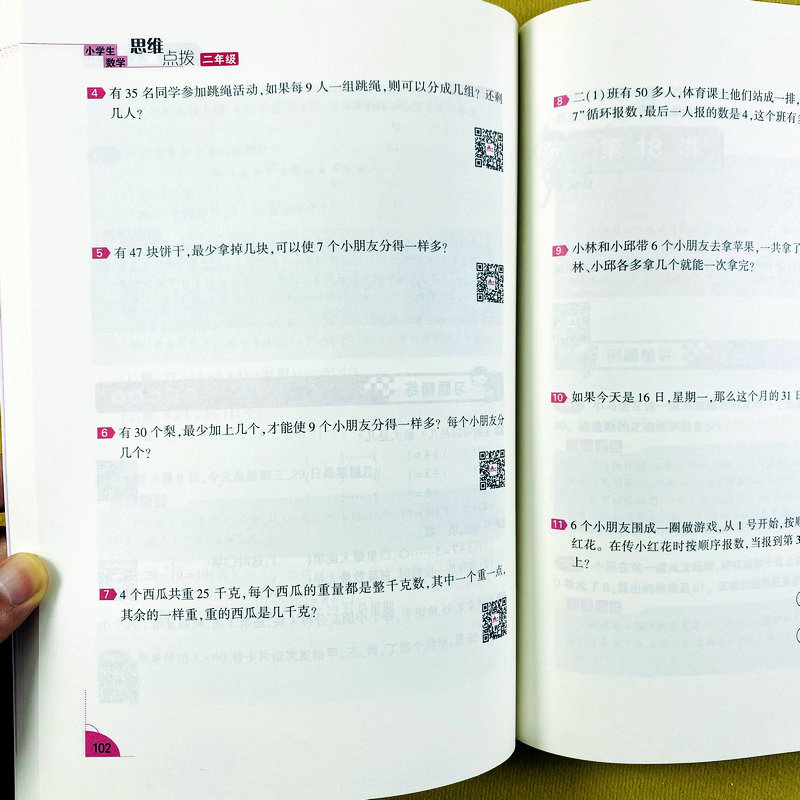 小学生
数学
思维
点拨
二年级
4 有 35 名同学参加跳绳活动,如果每 9 人一组跳绳,则可以分成几组? 还剩
几人?
5 有 47 块饼干,最少拿掉几块,可以使 7 个小朋友分得一样多?
6 有 30 个梨,最少加上几个,才能使 9 个小朋友分得一样多? 每个小朋友分
几个?
7 4 个西瓜共重 25 千克,每个西瓜的重量都是整千克数,其中一个重一点,
其余的一样重,重的西瓜是几千克?
102
8 二(1)班有 50 多人,体育课上他们站成一排,
7”循环报数,最后一人报的数是 4,这个班有
9 小林和小邱带 6 个小朋友去拿苹果,一共拿了
林、小邱各多拿几个就能一次拿完?
10 如果今天是 16 日,星期一,那么这个月的 31 日
11 6 个小朋友围成一圈做游戏,从 1 号开始,按顺
红花。在传小红花时按顺序报数,当报到第 3
上?